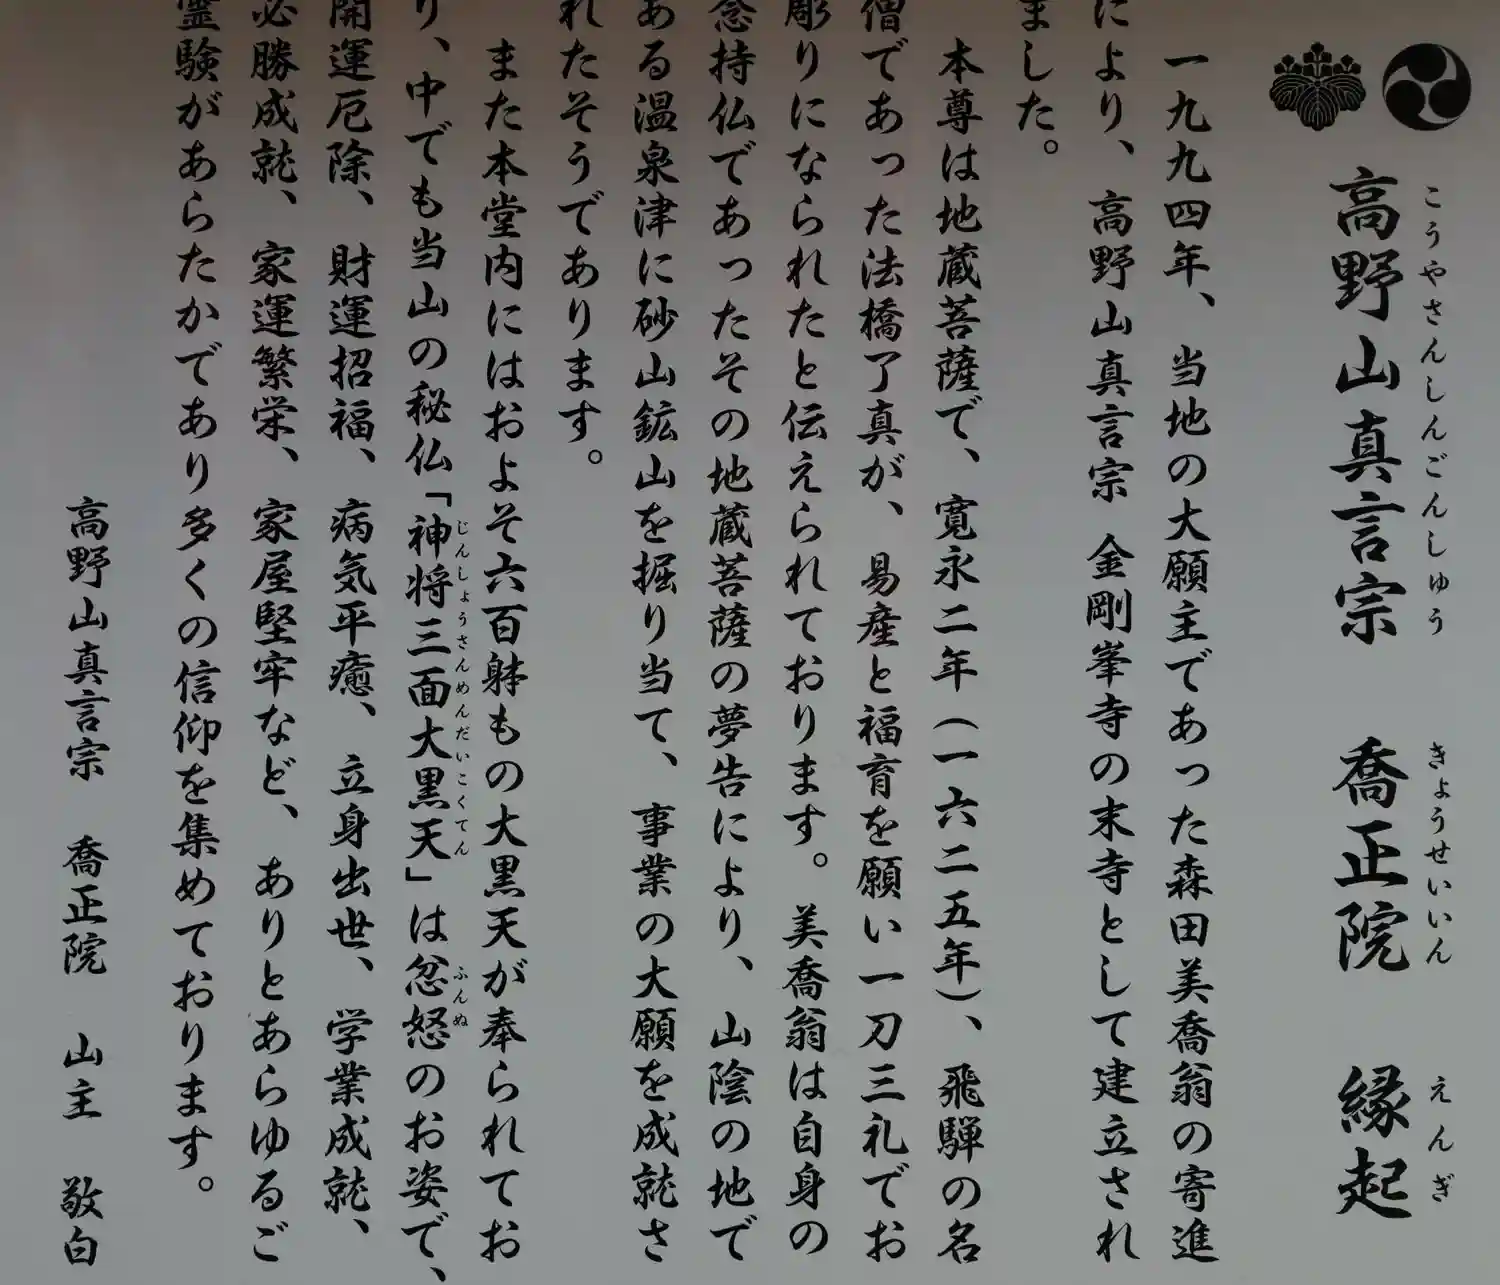 高野山真言宗　喬正院　縁起
こうやさんしんごんしゅう　きょうせいいん　えんぎ
一九九四年、当地の大願主であった森田美喬翁の寄進
により、高野山真言宗 金剛峯寺の末寺として建立され
ました。
本尊は地蔵菩薩で、寛永二年（一六二五年）、飛騨の名
僧であった法橋了真が、易産と福育を願い一刀三礼でお
彫りになられたと伝えられております。美喬翁は自身の
念持仏であったその地蔵菩薩の夢告により、山陰の地で
ある温泉津に砂山鉱山を掘り当て、事業の大願を成就さ
れたそうであります。
また本堂内にはおよそ六百躰もの大黒天が奉られてお
り、中でも当山の秘仏「神将三面大黒天」は忿怒のお姿で、
じんしょうさんめんだいこくてん　ふんぬ
開運厄除、財運招福、病気平癒、立身出世、学業成就、
必勝成就、家運繁栄、家屋堅牢など、ありとあらゆるご
霊験があらたかであり多くの信仰を集めております。
高野山真言宗　喬正院　山主　敬白